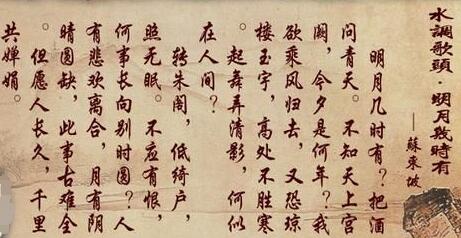 水調歌頭·明月幾時有
——蘇東坡
明月几时有？把酒
问青天。不知天上宫
阙，今夕是何年？我
欲乘风归去，又恐琼
楼玉宇，高处不胜寒
。起舞弄清影，何似
在人间？
转朱阁，低绮户，
照无眠。不应有恨，
何事长向别时圆？人
有悲欢离合，月有阴
晴圆缺，此事古难全
。但愿人长久，千里
共婵娟。